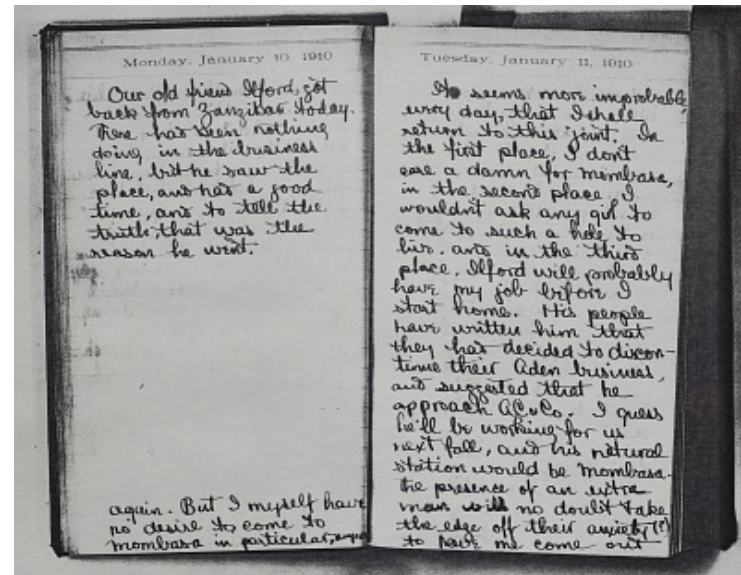 Monday, January 10, 1910
Our old friend Ilford, got
back from Zanzibar today.
There has been nothing
doing in the business
line, but he saw the
place, and had a good
time, and to tell the
truth, that was the
reason he went.
again. But I myself have
no desire to come to
Mombasa in particular,
Tuesday, January 11, 1910
It seems more improbable,
every day, that I shall
return to this joint. In
the first place, I don't
care a damn for Mombasa,
in the second place, I
wouldn't ask any girl to
come to such a hole to
live, and in the third
place, Ilford will probably
have my job before I
start home. His people
have written him that
they had decided to discon-
tinue their Aden business,
and suggested that he
approach & Co. I guess
he'll be working for us
next fall, and his natural
station would be Mombasa.
The presence of an extra
man will no doubt take
the edge off their anxiety (?)
to have me come out